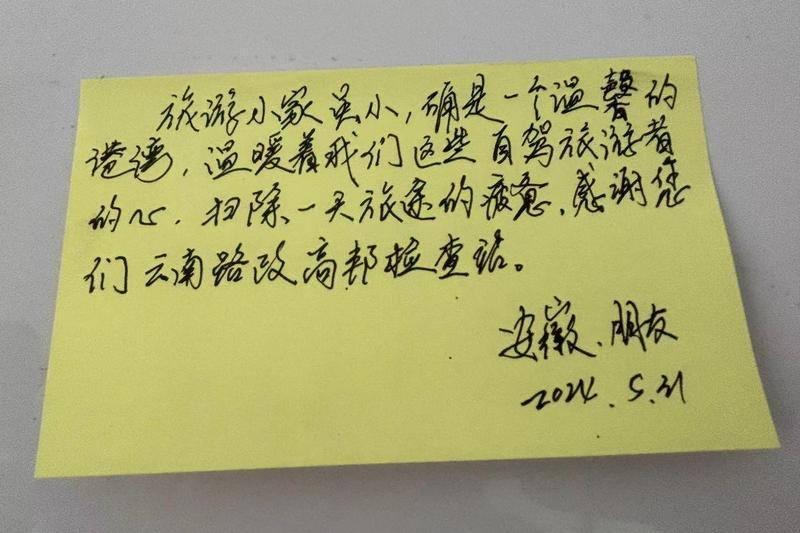 旅游小家虽小,确是一个温馨的
港湾,温暖着我们这些自驾旅游者
的心,扫除一天旅途的疲惫,感谢您
们云南路政高邦检查站。
安徽、朋友
2024.5.31